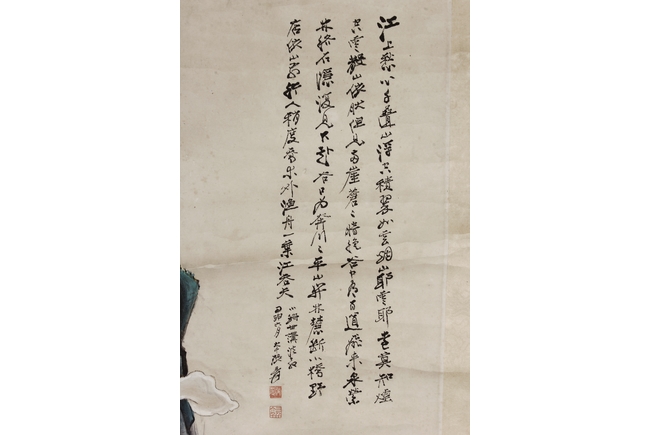 江上愁心千疊山浮空積翠如雲烟山耶雲耶遠莫知煙
空雲散山依然但見兩崖蒼々暗絕谷中有百道飛來泉縈
林絡石隱復見下赴谷口為奔川々平山開林麓斷小橋野
店依山前行人稍度喬木外漁舟一葉江吞天
世講法教
卯六月大千張爰